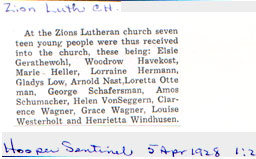 Zion Luth CH.
At the Zions Lutheran church seven
teen young people were thus received
into the church, these being: Elsie
Gerathewohl, Woodrow Havekost,
Marie Heller, Lorraine Hermann,
Gladys Low, Arnold Nast, Loretta Otte
man, George Schafersman, Amos
Schumacher, Helen VonSeggern, Clar-
ence Wagner, Grace Wagner, Louise
Westerholt and Henrietta Windhusen.
Hooper Sentinel 5 Apr 1928 1:2